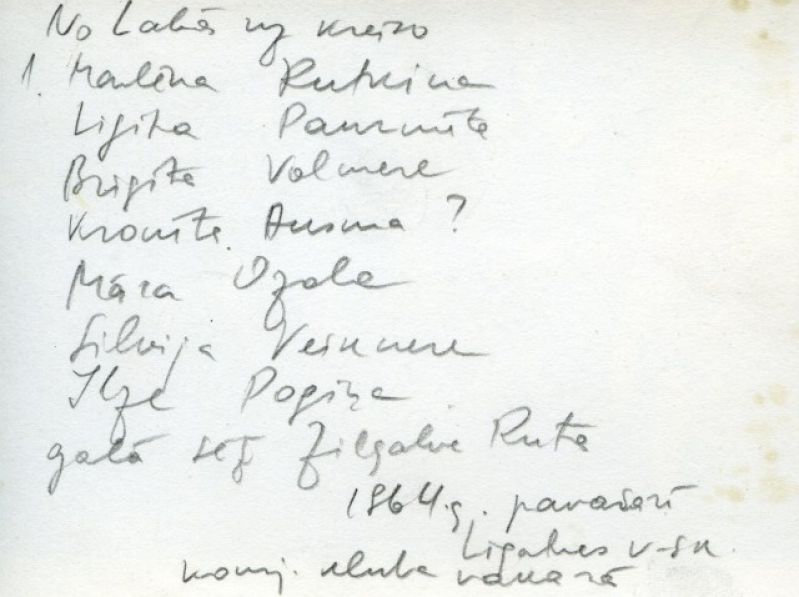 No labās uz kreiso
1. Maulēna Rutkina
Ligita Paurnīte
Brigita Volmere
Kronīte Ausma ?
Māra Ozola
Silvija Veismere
Ilze Pogiņa
galā sēž Zilgalve Ruta
1964.g. pavasarī
Līgatnes v-sk.
komj. kluba vakarā